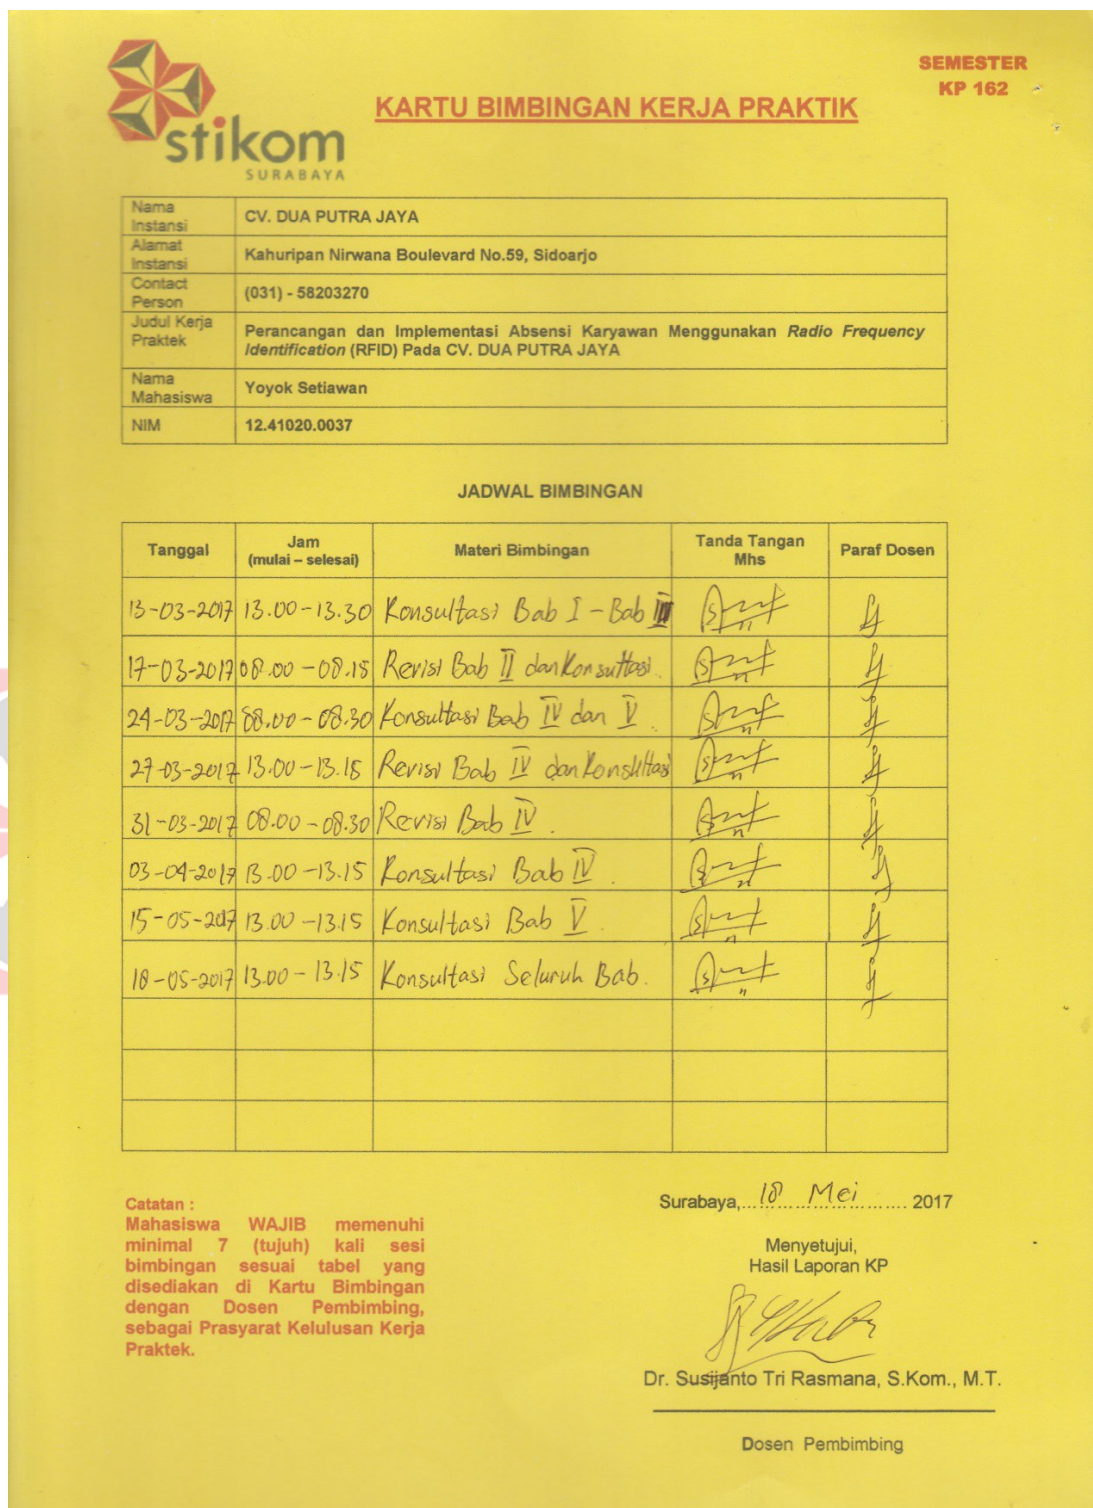 stikom
SURABAYA
KARTU BIMBINGAN KERJA PRAKTIK
SEMESTER
KP 162
Nama
Instansi
CV. DUA PUTRA JAYA
Alamat
Instansi
Kahuripan Nirwana Boulevard No.59, Sidoarjo
Contact
Person
(031) - 58203270
Judul Kerja
Praktek
Perancangan dan Implementasi Absensi Karyawan Menggunakan Radio Frequency
Identification (RFID) Pada CV. DUA PUTRA JAYA
Nama
Mahasiswa
Yoyok Setiawan
NIM 12.41020.0037
JADWAL BIMBINGAN
Tanggal
Jam
(mulai – selesai)
Materi Bimbingan
Tanda Tangan
Mhs
Paraf Dosen
13-03-2017 13.00-13.30 Konsultasi Bab I - Bab III
17-03-2017 08.00 - 08.15 Revisi Bab II dan Konsultasi.
24-03-2017 08.00 - 08.30 Konsultasi Bab IV dan V.
27-03-2017 13.00 - 13.15 Revisi Bab IV dan Konsultasi
31-03-2017 08.00 - 08.30 Revisi Bab IV.
03-04-2017 13.00 - 13.15 Konsultasi Bab IV.
15-05-2017 13.00 - 13.15 Konsultasi Bab V.
18-05-2017 13.00 - 13.15 Konsultasi Seluruh Bab.
Catatan :
Mahasiswa WAJIB memenuhi
minimal 7 (tujuh) kali sesi
bimbingan sesuai tabel yang
disediakan di Kartu Bimbingan
dengan Dosen Pembimbing,
sebagai Prasyarat Kelulusan Kerja
Praktek.
Surabaya, 18 Mei 2017
Menyetujui,
Hasil Laporan KP
Dr. Susijanto Tri Rasmana, S.Kom., M.T.
Dosen Pembimbing